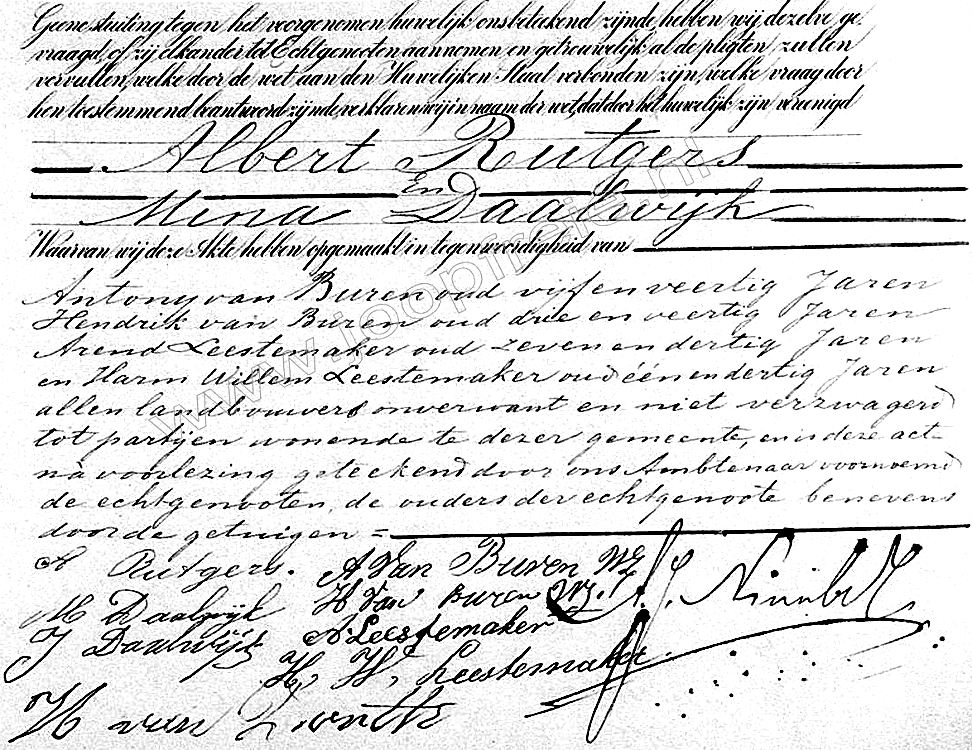 Geene stuiting tegen het voorgenomen huwelijk ons beteekend zijnde, hebben wij dezelve ge-
vraagd, of zij elkander tot Echtgenooten aannemen en getrouwelijk al de pligten zullen
vervullen, welke door de wet aan den Huwelijken Staat verbonden zijn, welke vraag door
hen toestemmend beantwoord zijnde, verklaren wij in naam der wet, dat door het huwelijk zijn vereenigd
Albert Rutgers
En
Mina Daalwijk
Waarvan wij deze Akte hebben opgemaakt in tegenwoordigheid van
Antony van Buren oud vijfenveertig Jaren
Hendrik van Buren oud drie en veertig Jaren
Arend Leestemaker oud zeven en dertig Jaren
en Harm Willem Leestemaker oud één en dertig Jaren
allen landbouwers onverwant en niet verzwagerd
tot partijen wonende te dezer gemeente, en is deze act-
na voorlezing geteekend door ons Ambtenaar voornoemd
de echtgenooten, de ouders der echtgenoote benevens
door de getuigen =
A Rutgers. A Van Buren Wz
M Daalwijk H Van Buren Wz.
J Daalwijk A Leestemaker
H. W. Leestemaker
H van
www.joopireia.nl